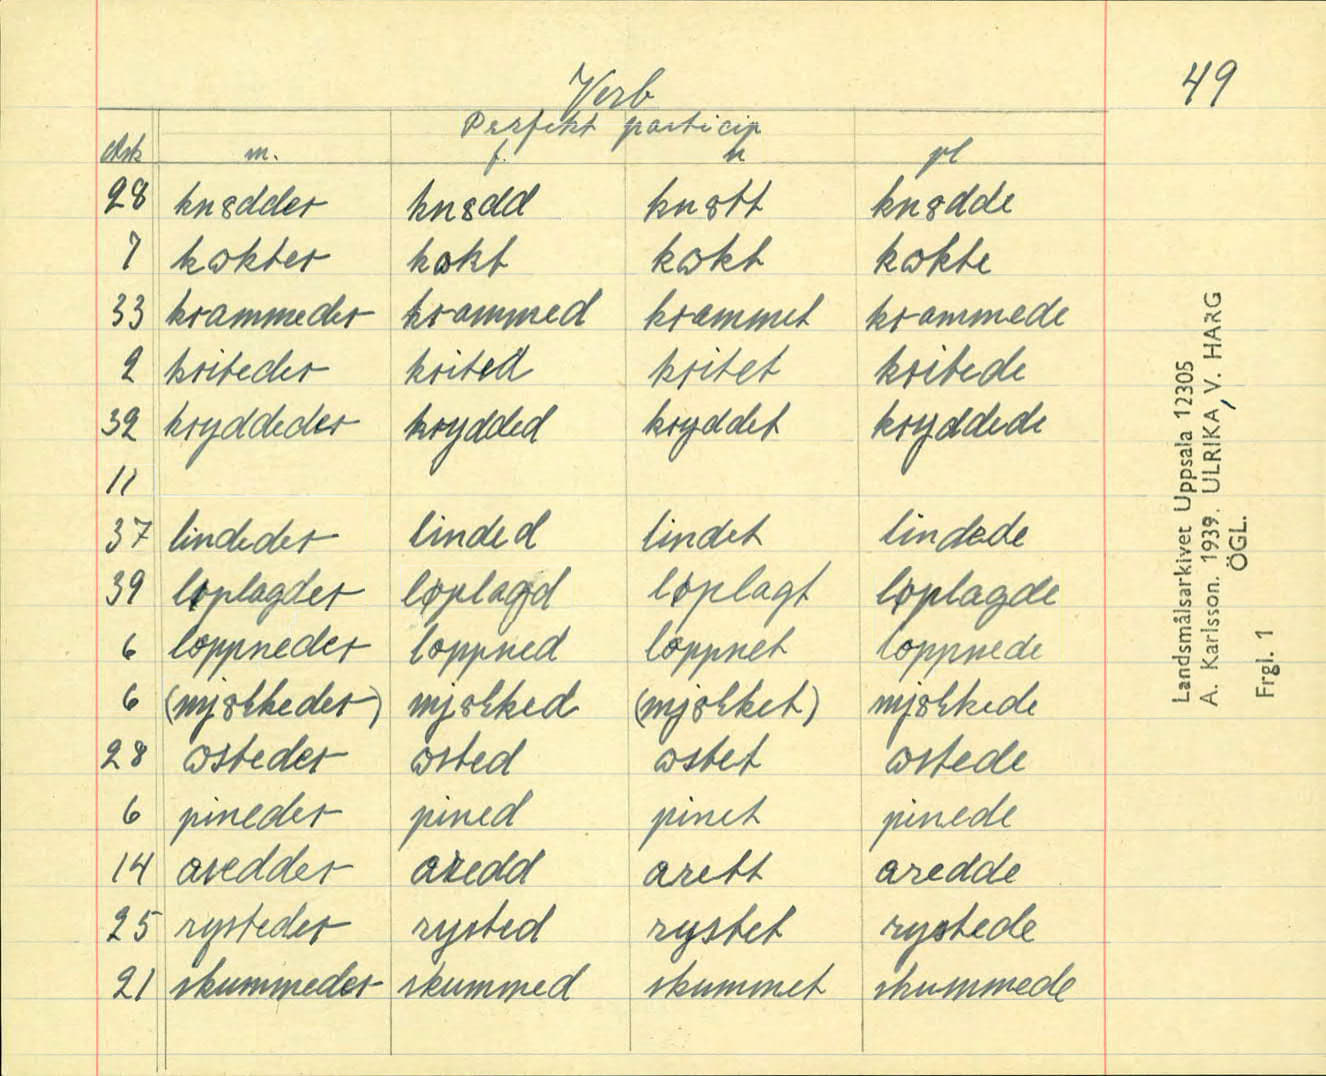 49
Verb
Perfekt particip
m. f. n pl
28 knødder knødd knøtt knødde
7 kokter kokt kokt kokte
33 krammeder krammed krammet krammede
2 kriteder krited kritet kritede
32 kryddeder krydded kryddet kryddede
11
37 lindeder linded lindet lindede
39 løplagder løplagd løplagt løplagde
6 loppneder loppned loppnet loppnede
6 (mjølkeder) mjølked (mjølket) mjølkede
28 osteder osted ostet ostede
6 pineder pined pinet pinede
14 aredder aredd arett aredde
25 rysteder rysted rystet rystede
21 skummeder skummed skummet skummede
Landsmålsarkivet Uppsala 12305
A. Karlsson. 1939. ULRIKA, V. HARG
ÖGL.
Frgl. 1